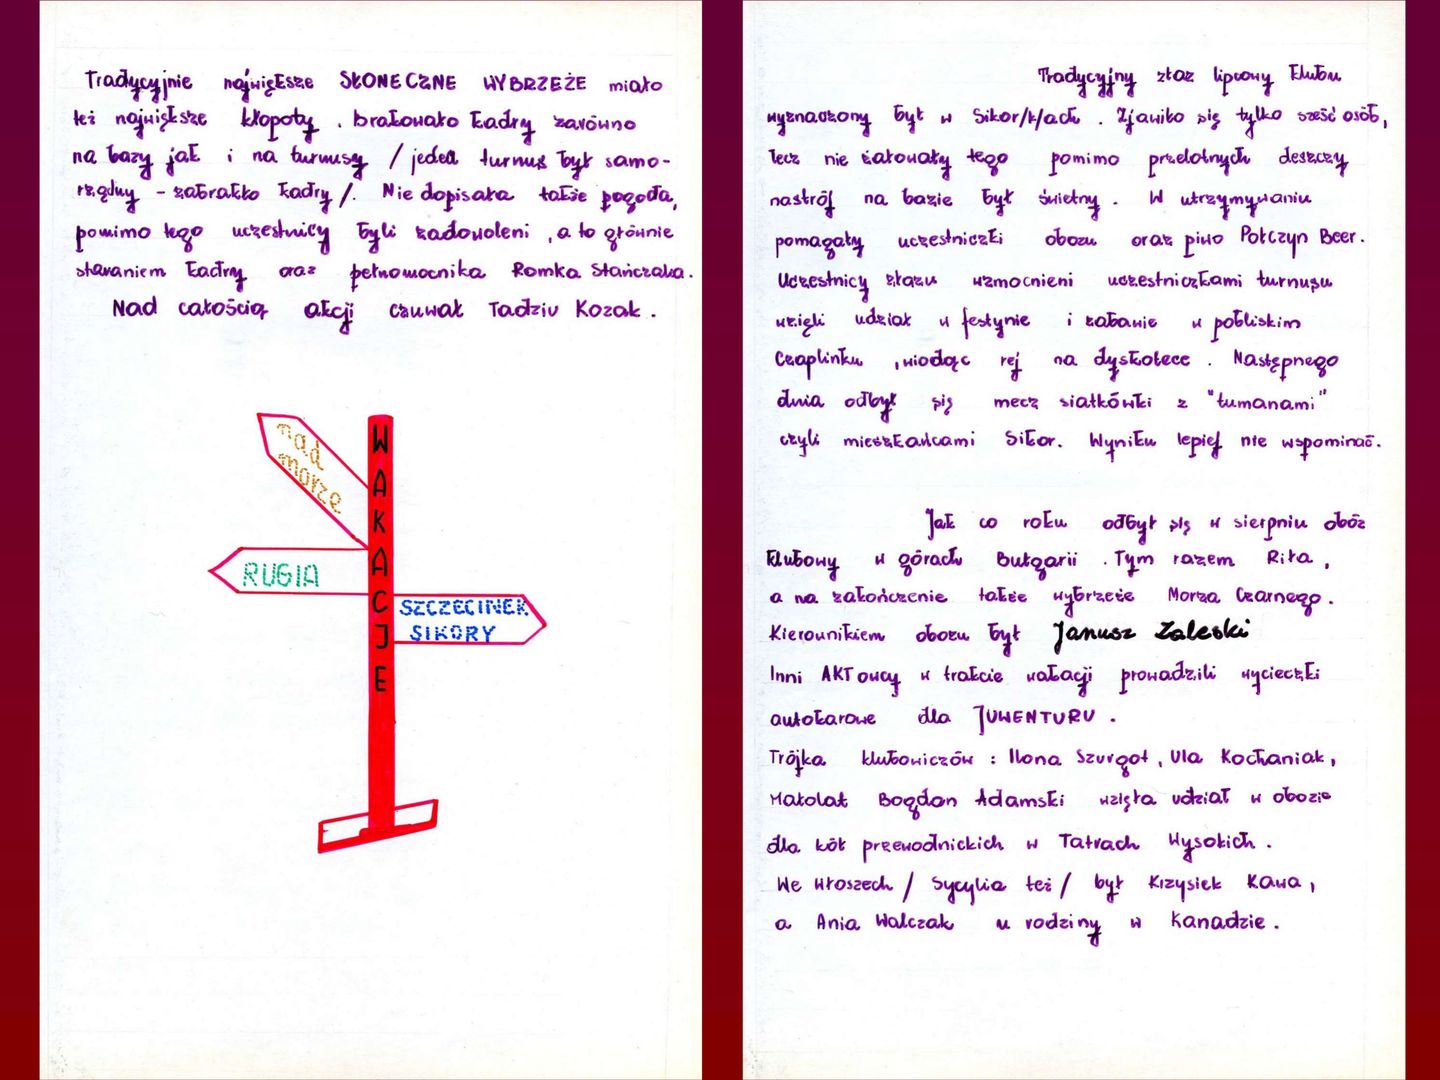 Tradycyjnie największe SŁONECZNE WYBRZEŻE miało
też największe kłopoty . brakowało kadry zarówno
na bazy jak i na turnusy / jeden turnus był samo-
rządny - zabrakło kadry /. Nie dopisała także pogoda,
pomimo tego uczestnicy byli zadowoleni , a to głównie
staraniem kadry oraz pełnomocnika Romka Stańczaka.
Nad całością akcji czuwał Tadziu Kozak .
WAKACJE
nad
morze
RUGIA
SZCZECINEK
SIKORY
Tradycyjny złaz lipcowy klubu
wyznaczony był w Sikor/k/ach . Zjawiło się tylko sześć osób,
lecz nie żałowały tego pomimo przelotnych deszczy
nastrój na bazie był świetny . W utrzymywaniu
pomagały uczestniczki obozu oraz piwo Połczyn Beer.
Uczestnicy złazu wzmocnieni uczestniczkami turnusu
wzięli udział w festynie i zabawie w pobliskim
Czaplinku , wiodąc rej na dyskotece . Następnego
dnia odbył się mecz siatkówki z "tumanami"
czyli mieszkańcami Sikor. Wyniku lepiej nie wspominać.
Jak co roku odbył się w sierpniu obóz
klubowy w górach Bułgarii . Tym razem Riła ,
a na zakończenie także wybrzeże Morza Czarnego .
Kierownikiem obozu był Janusz Zaleski
Inni AKTowcy w trakcie wakacji prowadzili wycieczki
autokarowe dla JUWENTURU .
Trójka klubowiczów : Ilona Szurgot , Ula Kochaniak ,
Małolat Bogdan Adamski wzięła udział w obozie
dla kół przewodnickich w Tatrach Wysokich .
We Włoszech / Sycylia też / był Krzysiek Kawa ,
a Ania Walczak u rodziny w Kanadzie .